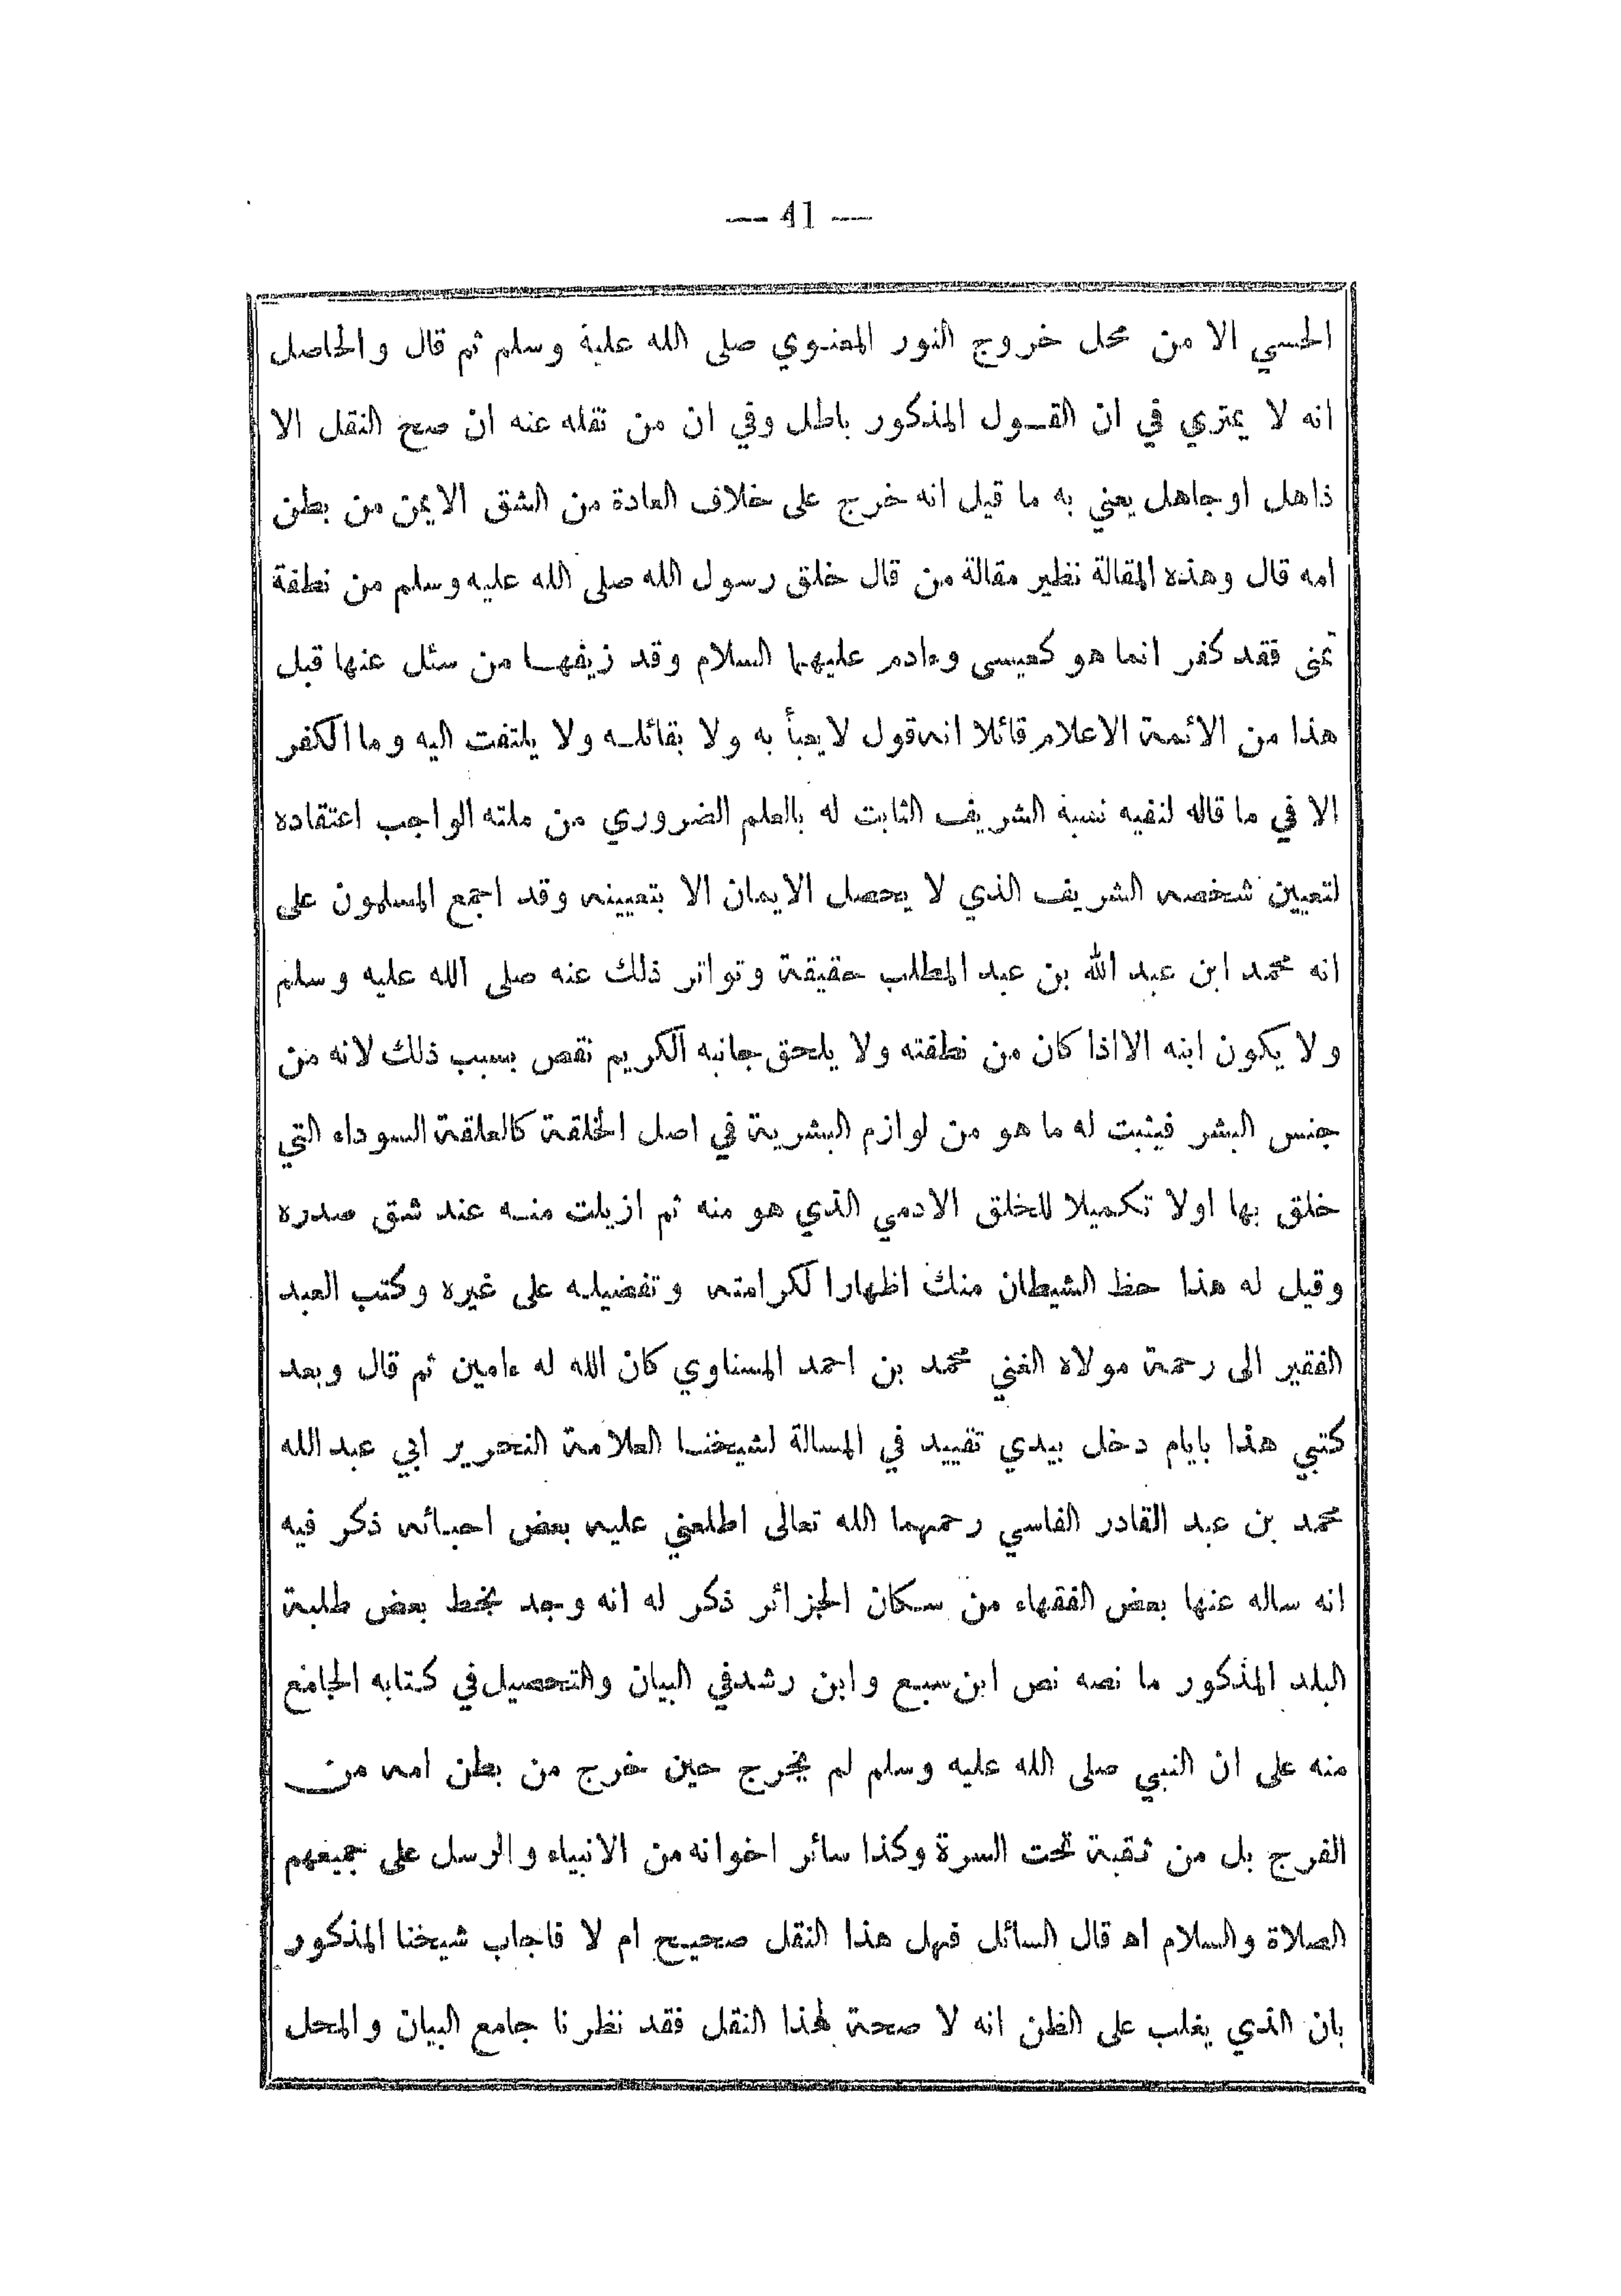 — 41 —
الحسي الا من محل خروج النور المعنوي صلى الله علية وسلم ثم قال والحاصل
انه لا يمتري في ان القول المذكور باطل وفي ان من نقله عنه ان صح النقل الا
ذاهل او جاهل يعني به ما قيل انه خرج على خلاف العادة من الشق الايمن من بطن
امه قال وهذه المقالة نظير مقالة من قال خلق رسول الله صلى الله عليه وسلم من نطفة
تمنى فقد كفر انما هو كعيسى وءادم عليهما السلام وقد زيفها من سئل عنها قبل
هذا من الائمة الاعلام قائلا انه قول لا يعبأ به ولا بقائله ولا يلتفت اليه وما الكفر
الا في ما قاله لنفيه نسبة الشريف الثابت له بالعلم الضروري من ملته الواجب اعتقاده
لتعيين شخصه الشريف الذي لا يحصل الايمان الا بتعيينه وقد اجمع المسلمون على
انه محمد ابن عبد الله بن عبد المطلب حقيقة وتواتر ذلك عنه صلى الله عليه وسلم
ولا يكون ابنه الا اذا كان من نطفته ولا يلحق جانبه الكريم نقص بسبب ذلك لانه من
جنس البشر فيثبت له ما هو من لوازم البشرية في اصل الخلقة كالعلقة السوداء التي
خلق بها اولا تكميلا للخلق الادمي الذي هو منه ثم ازيلت منه عند شق صدره
وقيل له هذا حظ الشيطان منك اظهارا لكرامته وتفضيله على غيره وكتب العبد
الفقير الى رحمة مولاه الغني محمد بن احمد المسناوي كان الله له ءامين ثم قال وبعد
كتبي هذا بايام دخل بيدي تقييد في المسالة لشيخنا العلامة النحرير ابي عبد الله
محمد بن عبد القادر الفاسي رحمهما الله تعالى اطلعني عليه بعض احبائه ذكر فيه
انه ساله عنها بعض الفقهاء من سكان الجزائر ذكر له انه وجد بخط بعض طلبة
البلد المذكور ما نصه نص ابن سبع وابن رشد في البيان والتحصيل في كتابه الجامع
منه على ان النبي صلى الله عليه وسلم لم يخرج حين خرج من بطن امه من
الفرج بل من ثقبة تحت السرة وكذا سائر اخوانه من الانبياء والرسل على جميعهم
الصلاة والسلام اه قال السائل فهل هذا النقل صحيح ام لا فاجاب شيخنا المذكور
بان الذي يغلب على الظن انه لا صحة لهذا النقل فقد نظرنا جامع البيان والمحل